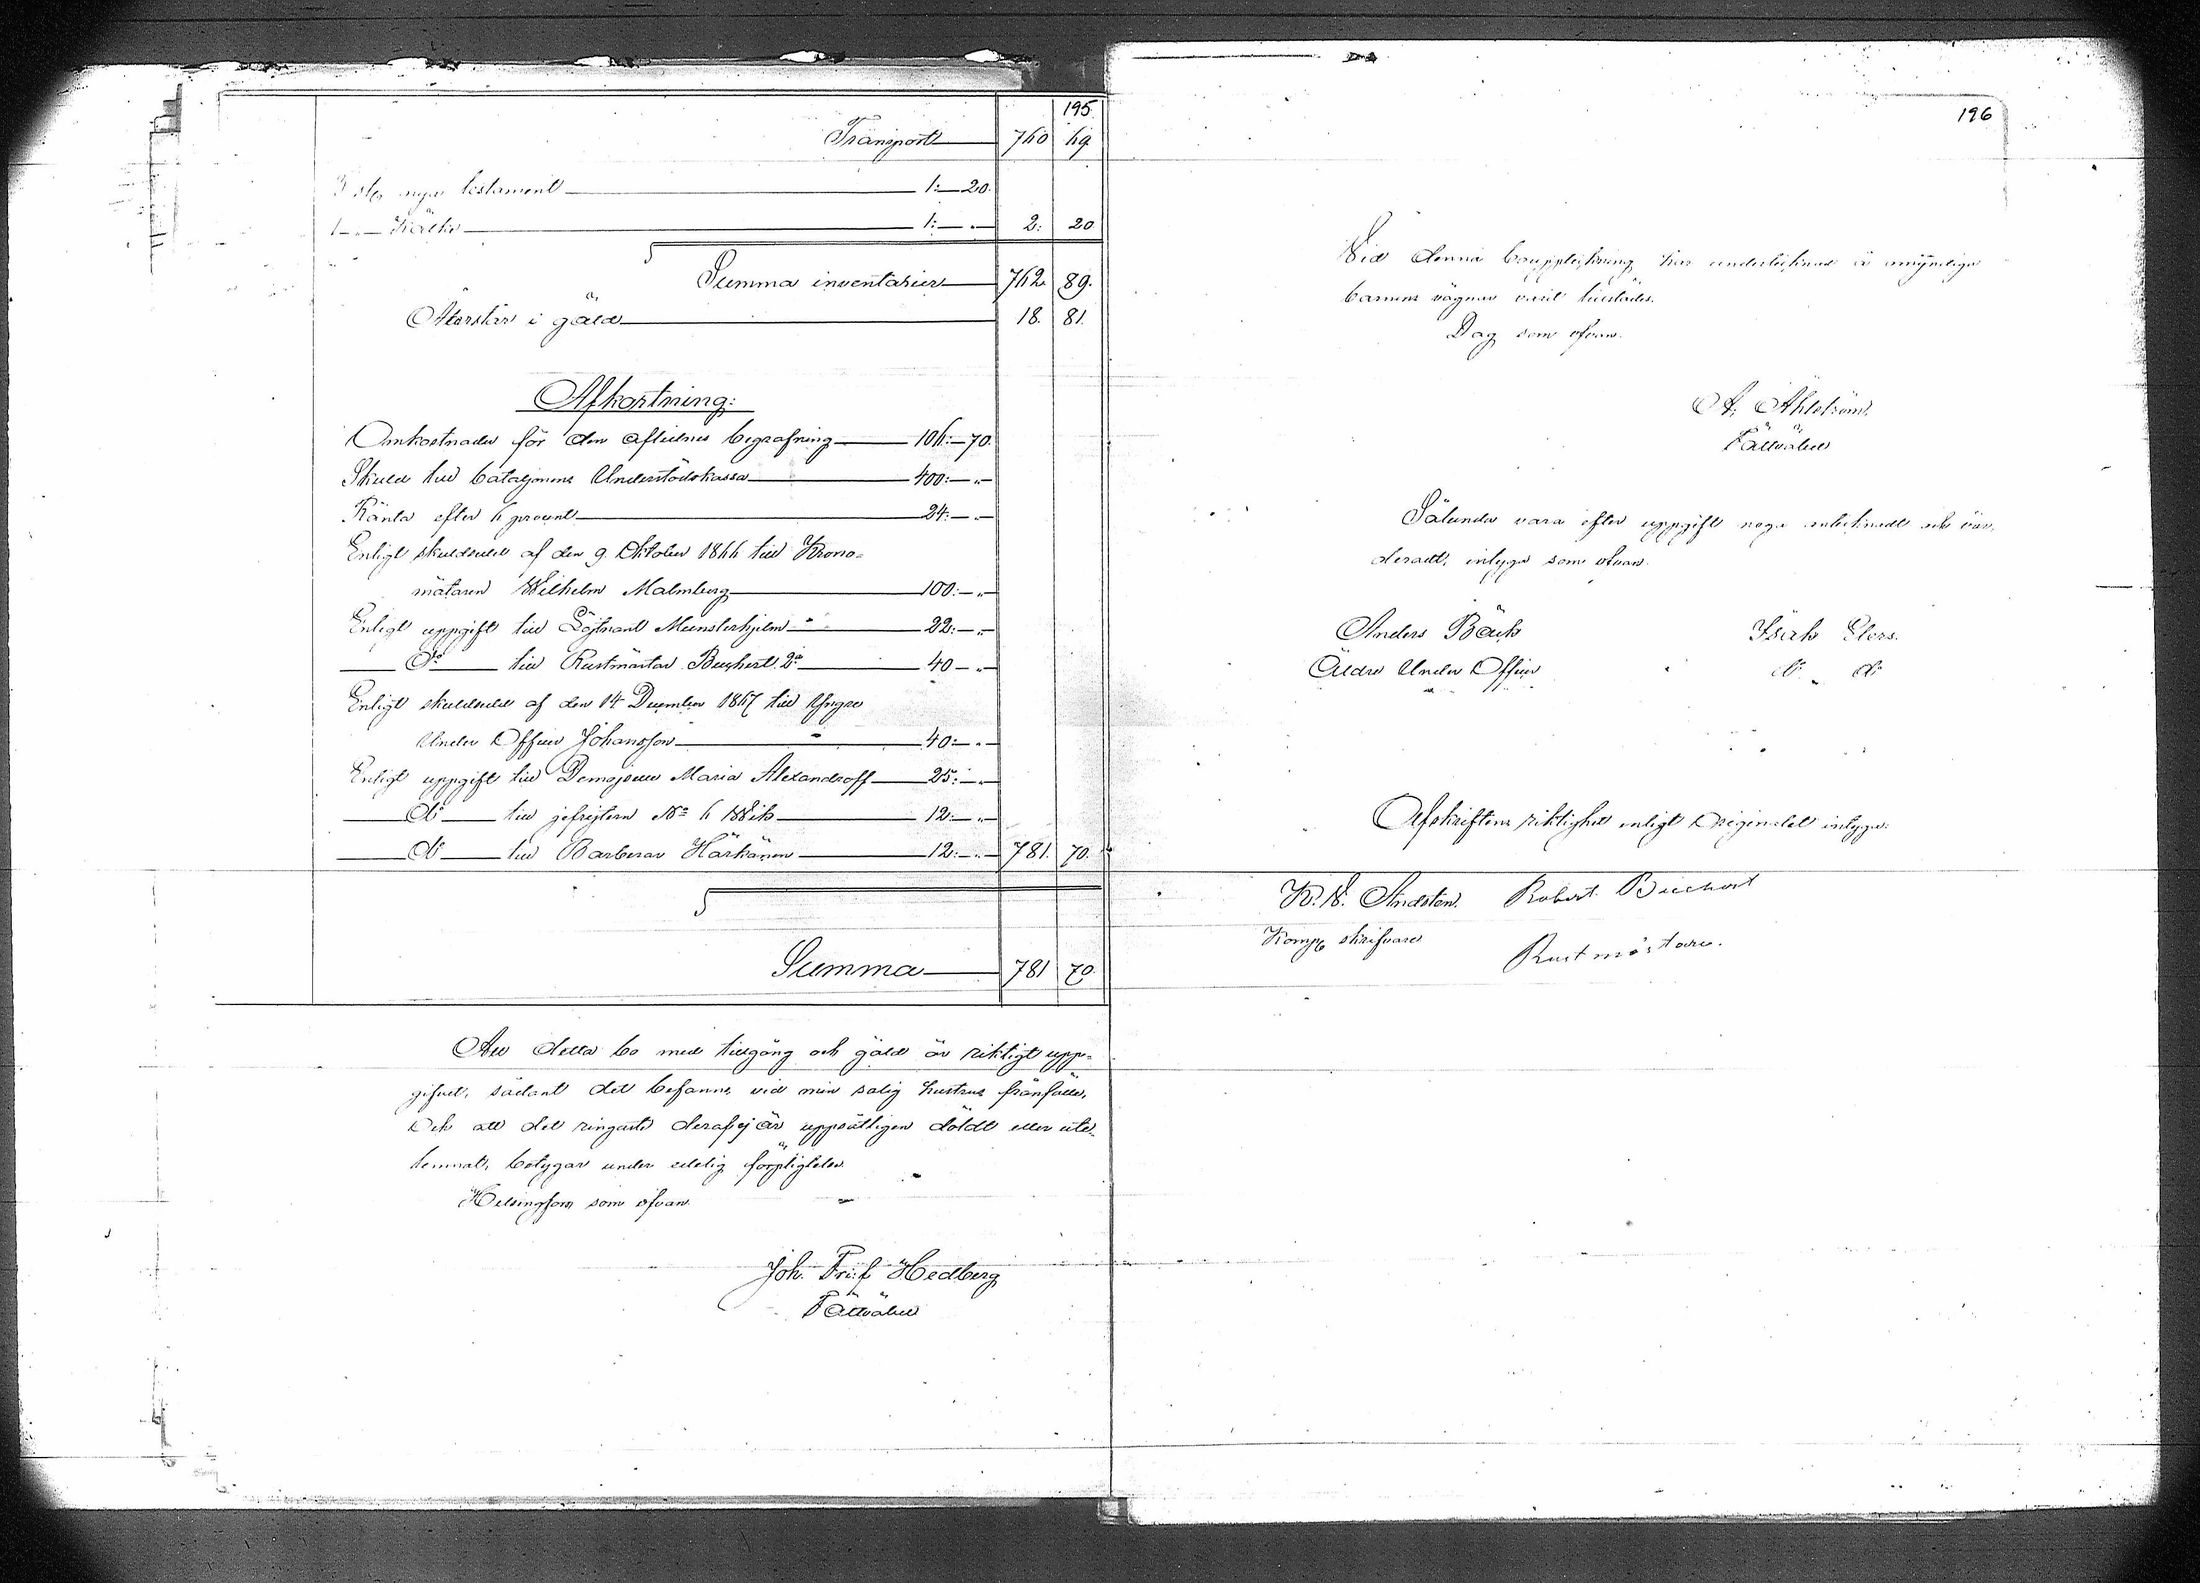 195
Transport 760 69
3 st. nya testament 1:—20.
1 —„— Kälke 1:— „— 2: 20
Summa inventarier 762. 89.
Återstår i gäld 18. 81.
Afkortning:
Omkostnader för den aflidnes begrafning 106:—70.
Skuld till bataljonens Understödskassa 400:—„—
Ränta efter 6 procent 24:—„—
Enligt skuldsedel af den 9 Oktober 1866 till Krono-
mätaren Wilhelm Malmberg 100:—„—
Enligt uppgift till Löjtnant Munsterhjelm 22:—„—
do till Rustmästar Buchert 2a 40—„—
Enligt skuldsedel af den 14 December 1867 till Yngre
Under Officer Johansson 40:—„—
Enligt uppgift till Demojselle Maria Alexandroff 25:—„—
do till gefrejtern No 6 Wik 12:—„—
do till Barberar Härkänen 12:—„— 781. 70.
Summa 781 70.
Att detta bo med tillgång och gäld är riktigt upp-
gifvet, sådant det befanns vid min salig hustrus frånfälle,
Och att det ringaste deraf ej är uppsåtligen döldt eller ute-
lemnat, betygar under edelig förpligtelse.
Helsingfors som ofvan.
Joh. Fri.f Hedberg
196
Vid denna bouppteckning har undertecknad å omyndiga
barnens vägnar varit tillstädes.
Dag som ofvan.
A. Ahlström.
Sålunda vara efter uppgift noga antecknadt och vär-
deradt, intyga som ofvan.
Anders Bäck Isak Elers.
Äldre Under Officer do do
Afskriftens riktighet enligt Originalet intyga:
K. W. Andsten. Robert Buchert
Komp. skrifvare Rustmästare.